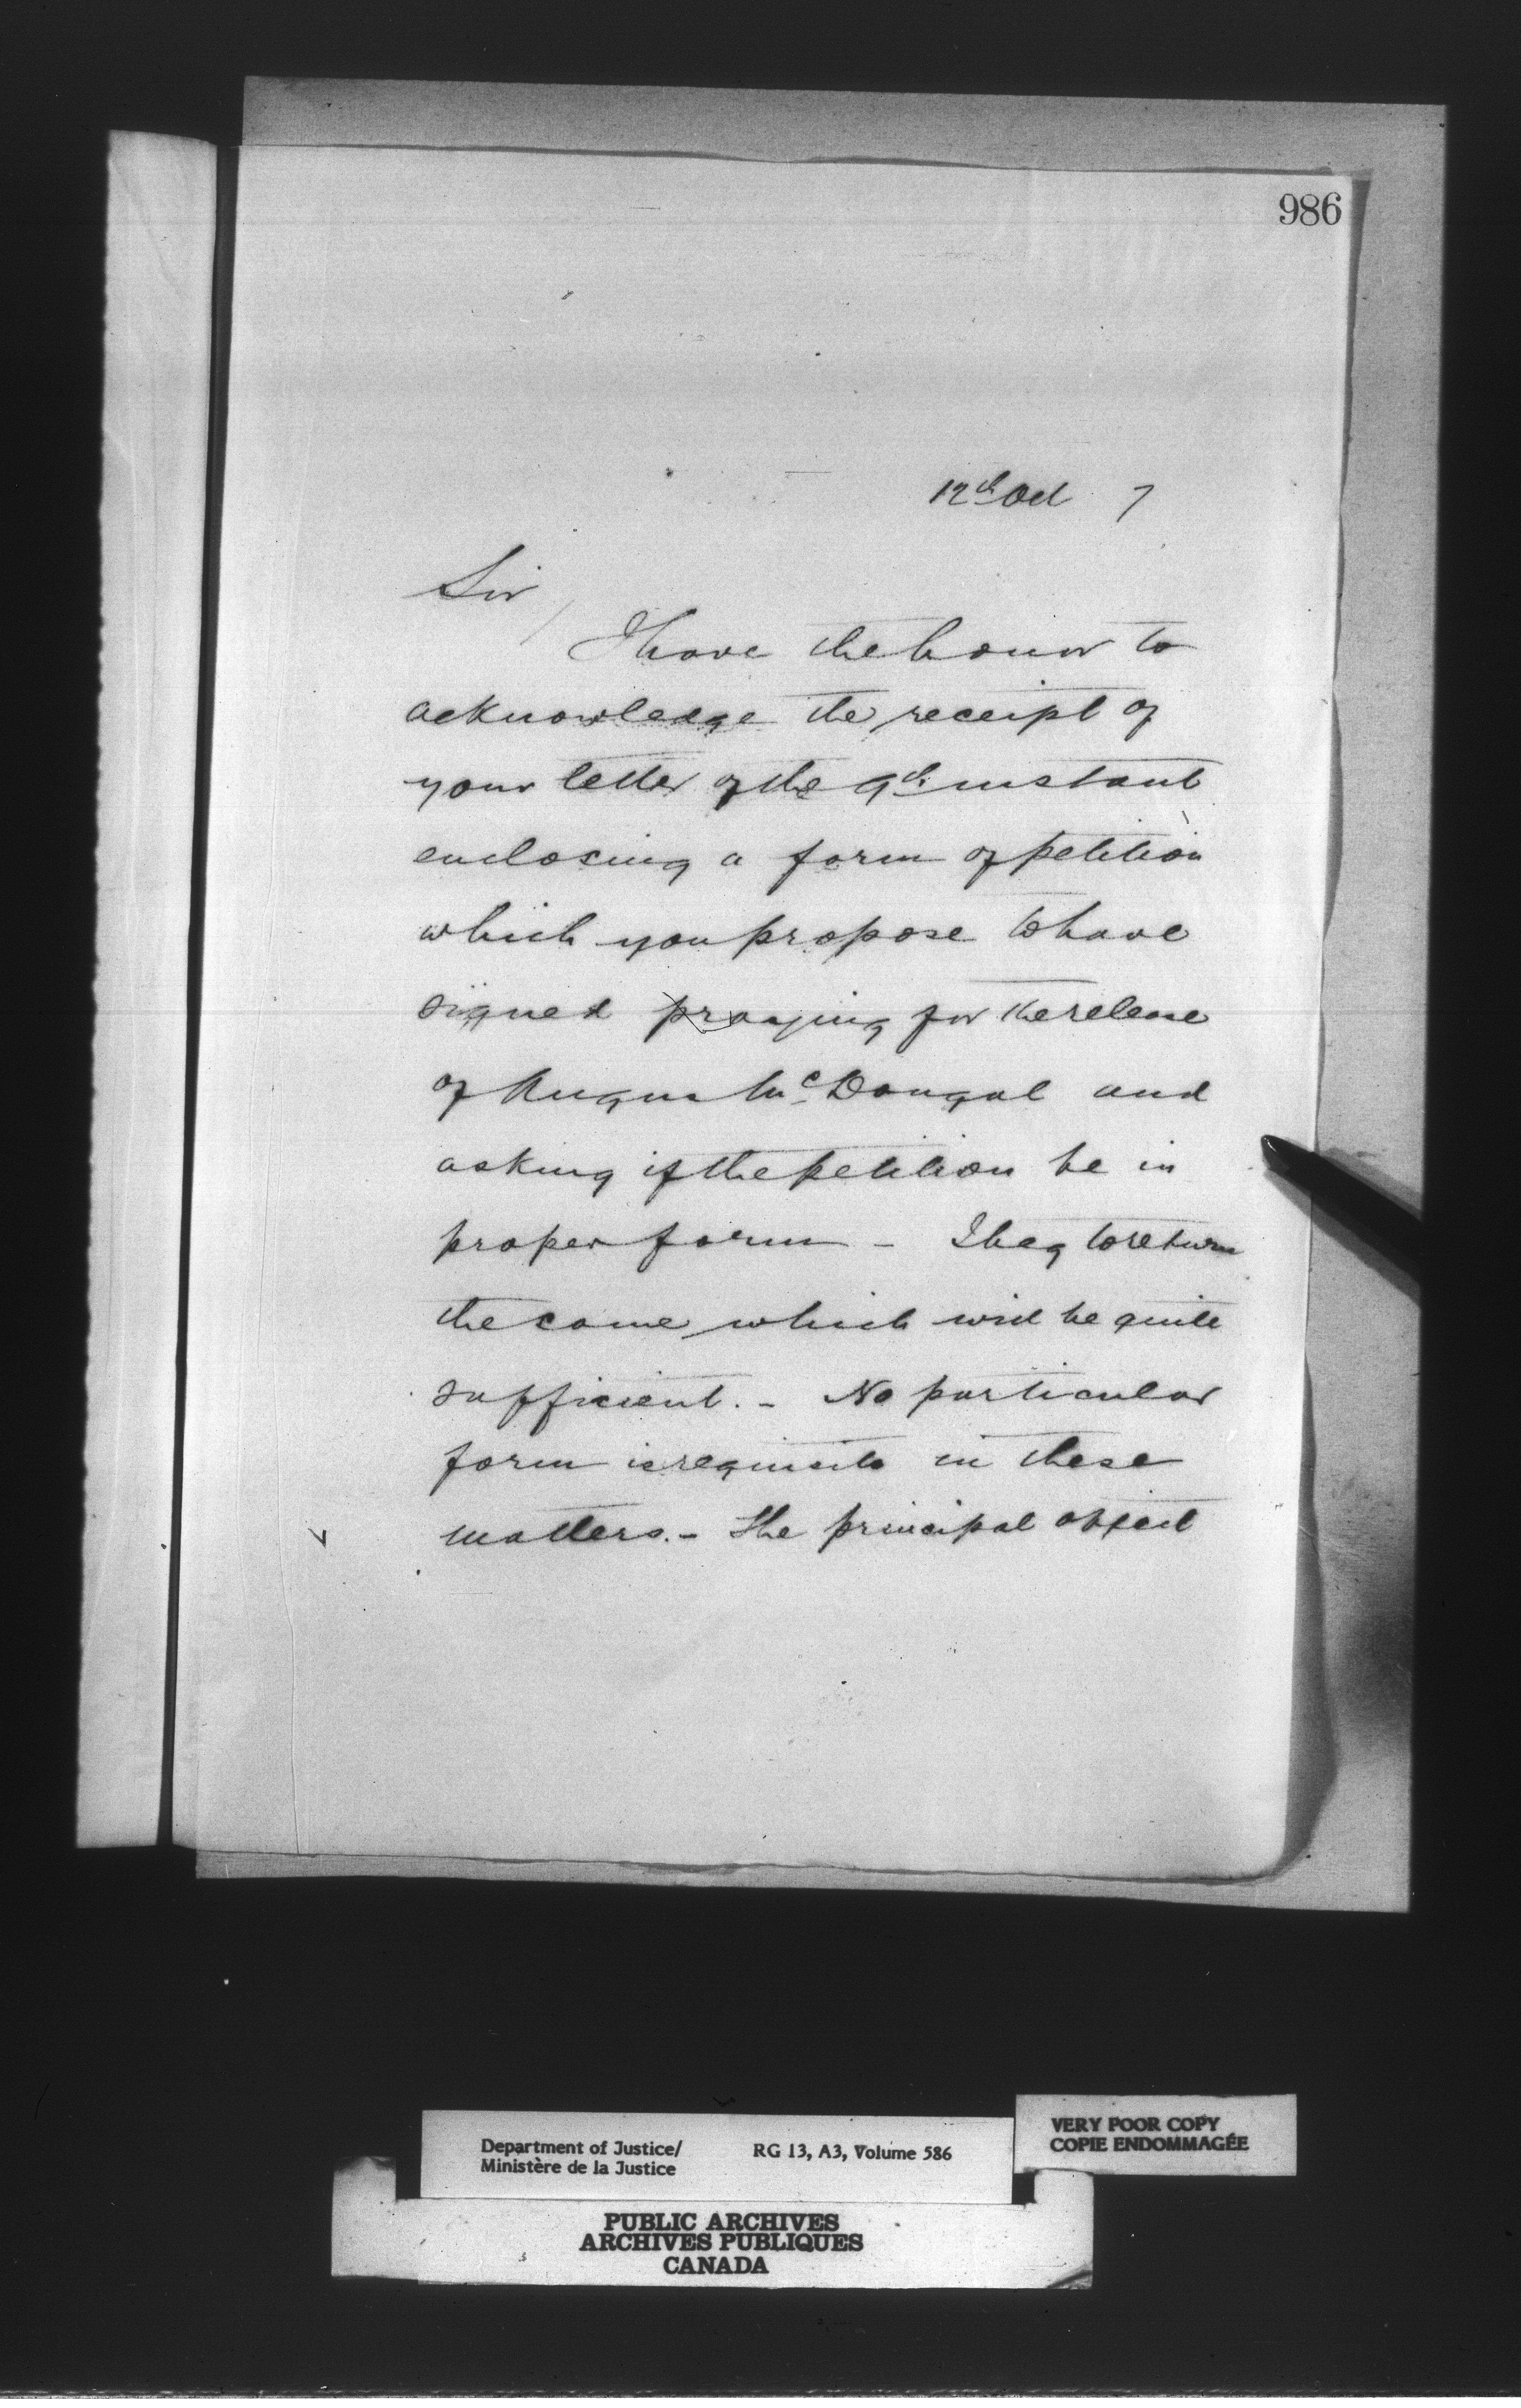 986
12th Oct 7
Sir
I have the honor to
acknowledge the receipt of
your letter of the 9th instant
enclosing a form of petition
which you propose to have
signed praying for the release
of Angus McDougal and
asking if the petition be in
proper form - I beg to return
the same which will be quite
sufficient. - No particular
form is requisite in these
matters. - The principal object
Department of Justice/
Ministère de la Justice
RG 13, A3, Volume 586
VERY POOR COPY
COPIE ENDOMMAGÉE
PUBLIC ARCHIVES
ARCHIVES PUBLIQUES
CANADA